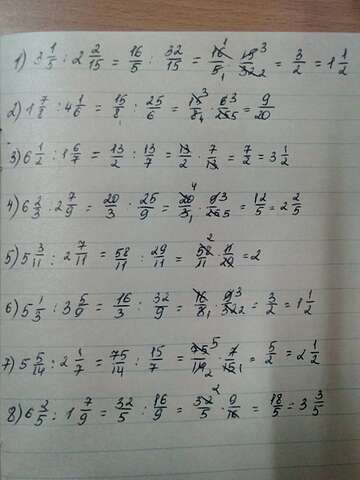 1) 3 1/5 : 2 2/15 = 16/5 : 32/15 = 16/5 · 15/32 = 3/2 = 1 1/2
2) 1 7/8 : 4 1/6 = 15/8 : 25/6 = 15/8 · 6/25 = 9/20
3) 6 1/2 : 1 6/7 = 13/2 : 13/7 = 13/2 · 7/13 = 7/2 = 3 1/2
4) 6 2/3 : 2 7/9 = 20/3 : 25/9 = 20/3 · 9/25 = 12/5 = 2 2/5
5) 5 3/11 : 2 7/11 = 58/11 : 29/11 = 58/11 · 11/29 = 2
6) 5 1/3 : 3 5/9 = 16/3 : 32/9 = 16/3 · 9/32 = 3/2 = 1 1/2
7) 5 5/14 : 2 1/7 = 75/14 : 15/7 = 75/14 · 7/15 = 5/2 = 2 1/2
8) 6 2/5 : 1 7/9 = 32/5 : 16/9 = 32/5 · 9/16 = 18/5 = 3 3/5